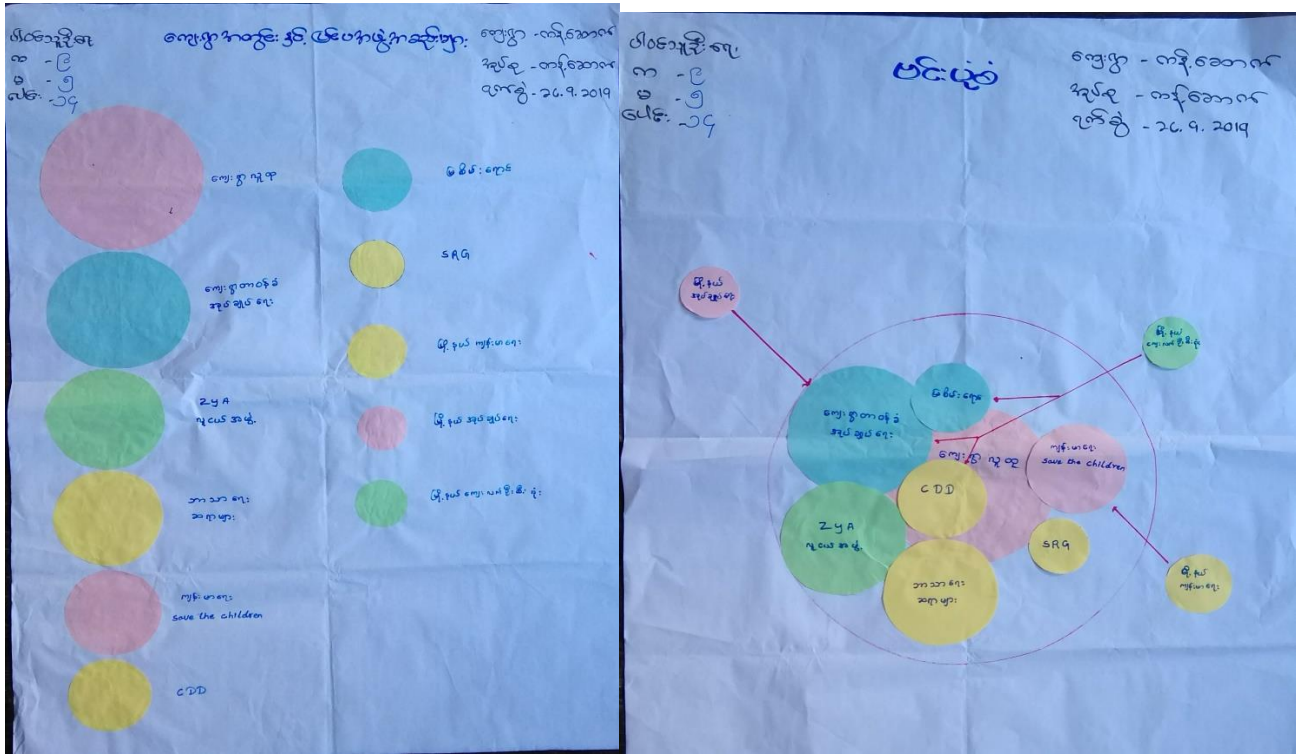 ပါဝင်သူဦးရေ
က - ၉
မ - ၅
ပေါင်း - ၁၄
ကျေးရွာအတွင်း နှင့် ပြင်ပအဖွဲ့အစည်းများ
ကျေးရွာ - ကန့်ဆောက်
အုပ်စု - ကန့်ဆောက်
ရက်စွဲ - ၁၄.9.2019
ကျေးရွာလူထု
ကျေးရွာတာဝန်ခံ
အုပ်ချုပ်ရေး
ZYA
လူငယ်အဖွဲ့
ဘာသာရေး
ဆရာများ
ကျန်းမာရေး
save the children
CDD
မြစိမ်းရောင်
SRG
မြို့နယ် ကျန်းမာရေး
မြို့နယ် အုပ်ချုပ်ရေး
မြို့နယ် ကျေးလက်ဦးစီးရုံး
ပါဝင်သူဦးရေ
က - ၉
မ - ၅
ပေါင်း - ၁၄
ဗင်းပုံစံ
ကျေးရွာ - ကန့်ဆောက်
အုပ်စု - ကန့်ဆောက်
ရက်စွဲ - ၂၄.9.2019
မြို့နယ်
အုပ်ချုပ်ရေး
မြို့နယ်
ကျေးလက်ဦးစီးရုံး
မြစိမ်းရောင်
ကျေးရွာတာဝန်ခံ
အုပ်ချုပ်ရေး
ကျေးရွာ လူထု
ကျန်းမာရေး
save the children
CDD
ZYA
လူငယ်အဖွဲ့
SRG
ဘာသာရေး
ဆရာများ
မြို့နယ်
ကျန်းမာရေး